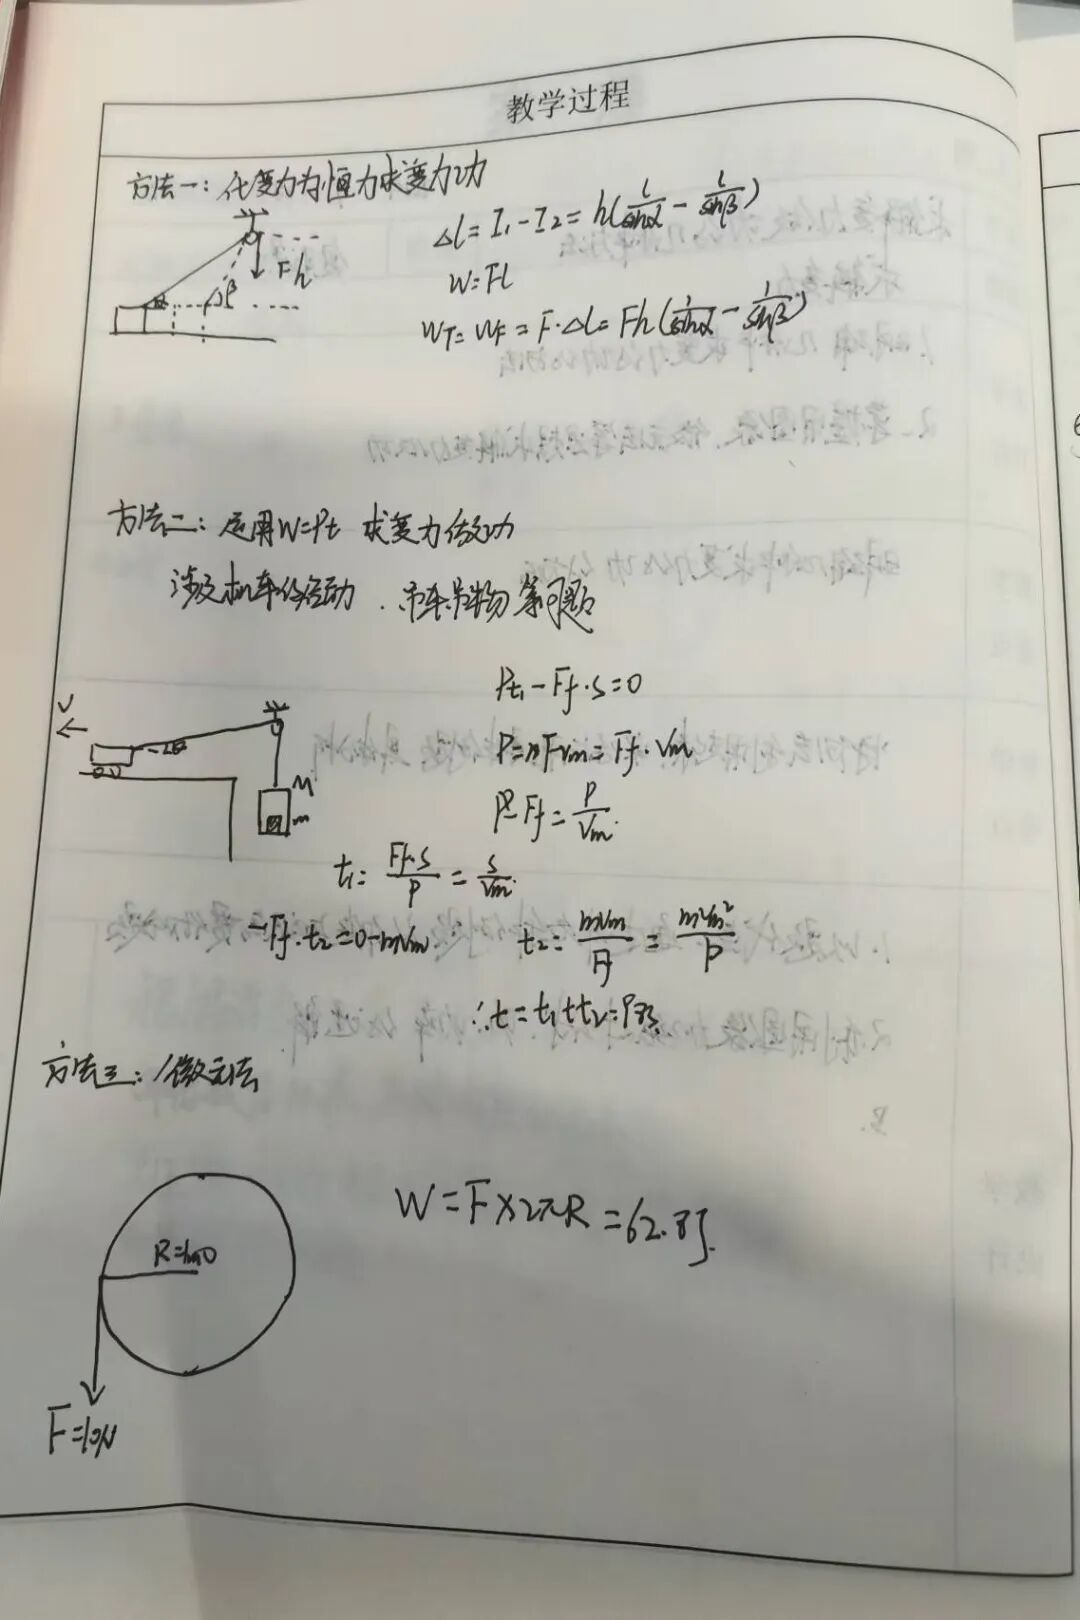 教学过程
方法一：化变力为恒力求变力功
Δl=I₁-I₂=h(1/sinα - 1/sinβ)
W=Fl
W_T=W_F=F·Δl=Fh(1/sinα - 1/sinβ)
F h
α β
方法二：运用W=Pt 求变力做功
涉及机车的启动、吊车吊物等问题
Pt₁-Ff·s=0
V
P=nFvm=Ff·Vm
M
m
Ff=P/Vm
t₁=Ff·s/P=s/Vm
-Ff·t₂=0-mVm t₂=mVm/Ff=m²Vm²/P
∴t=t₁+t₂=
方法三：微元法
W=F×2πR=62.8J.
R=1m O
F=10N